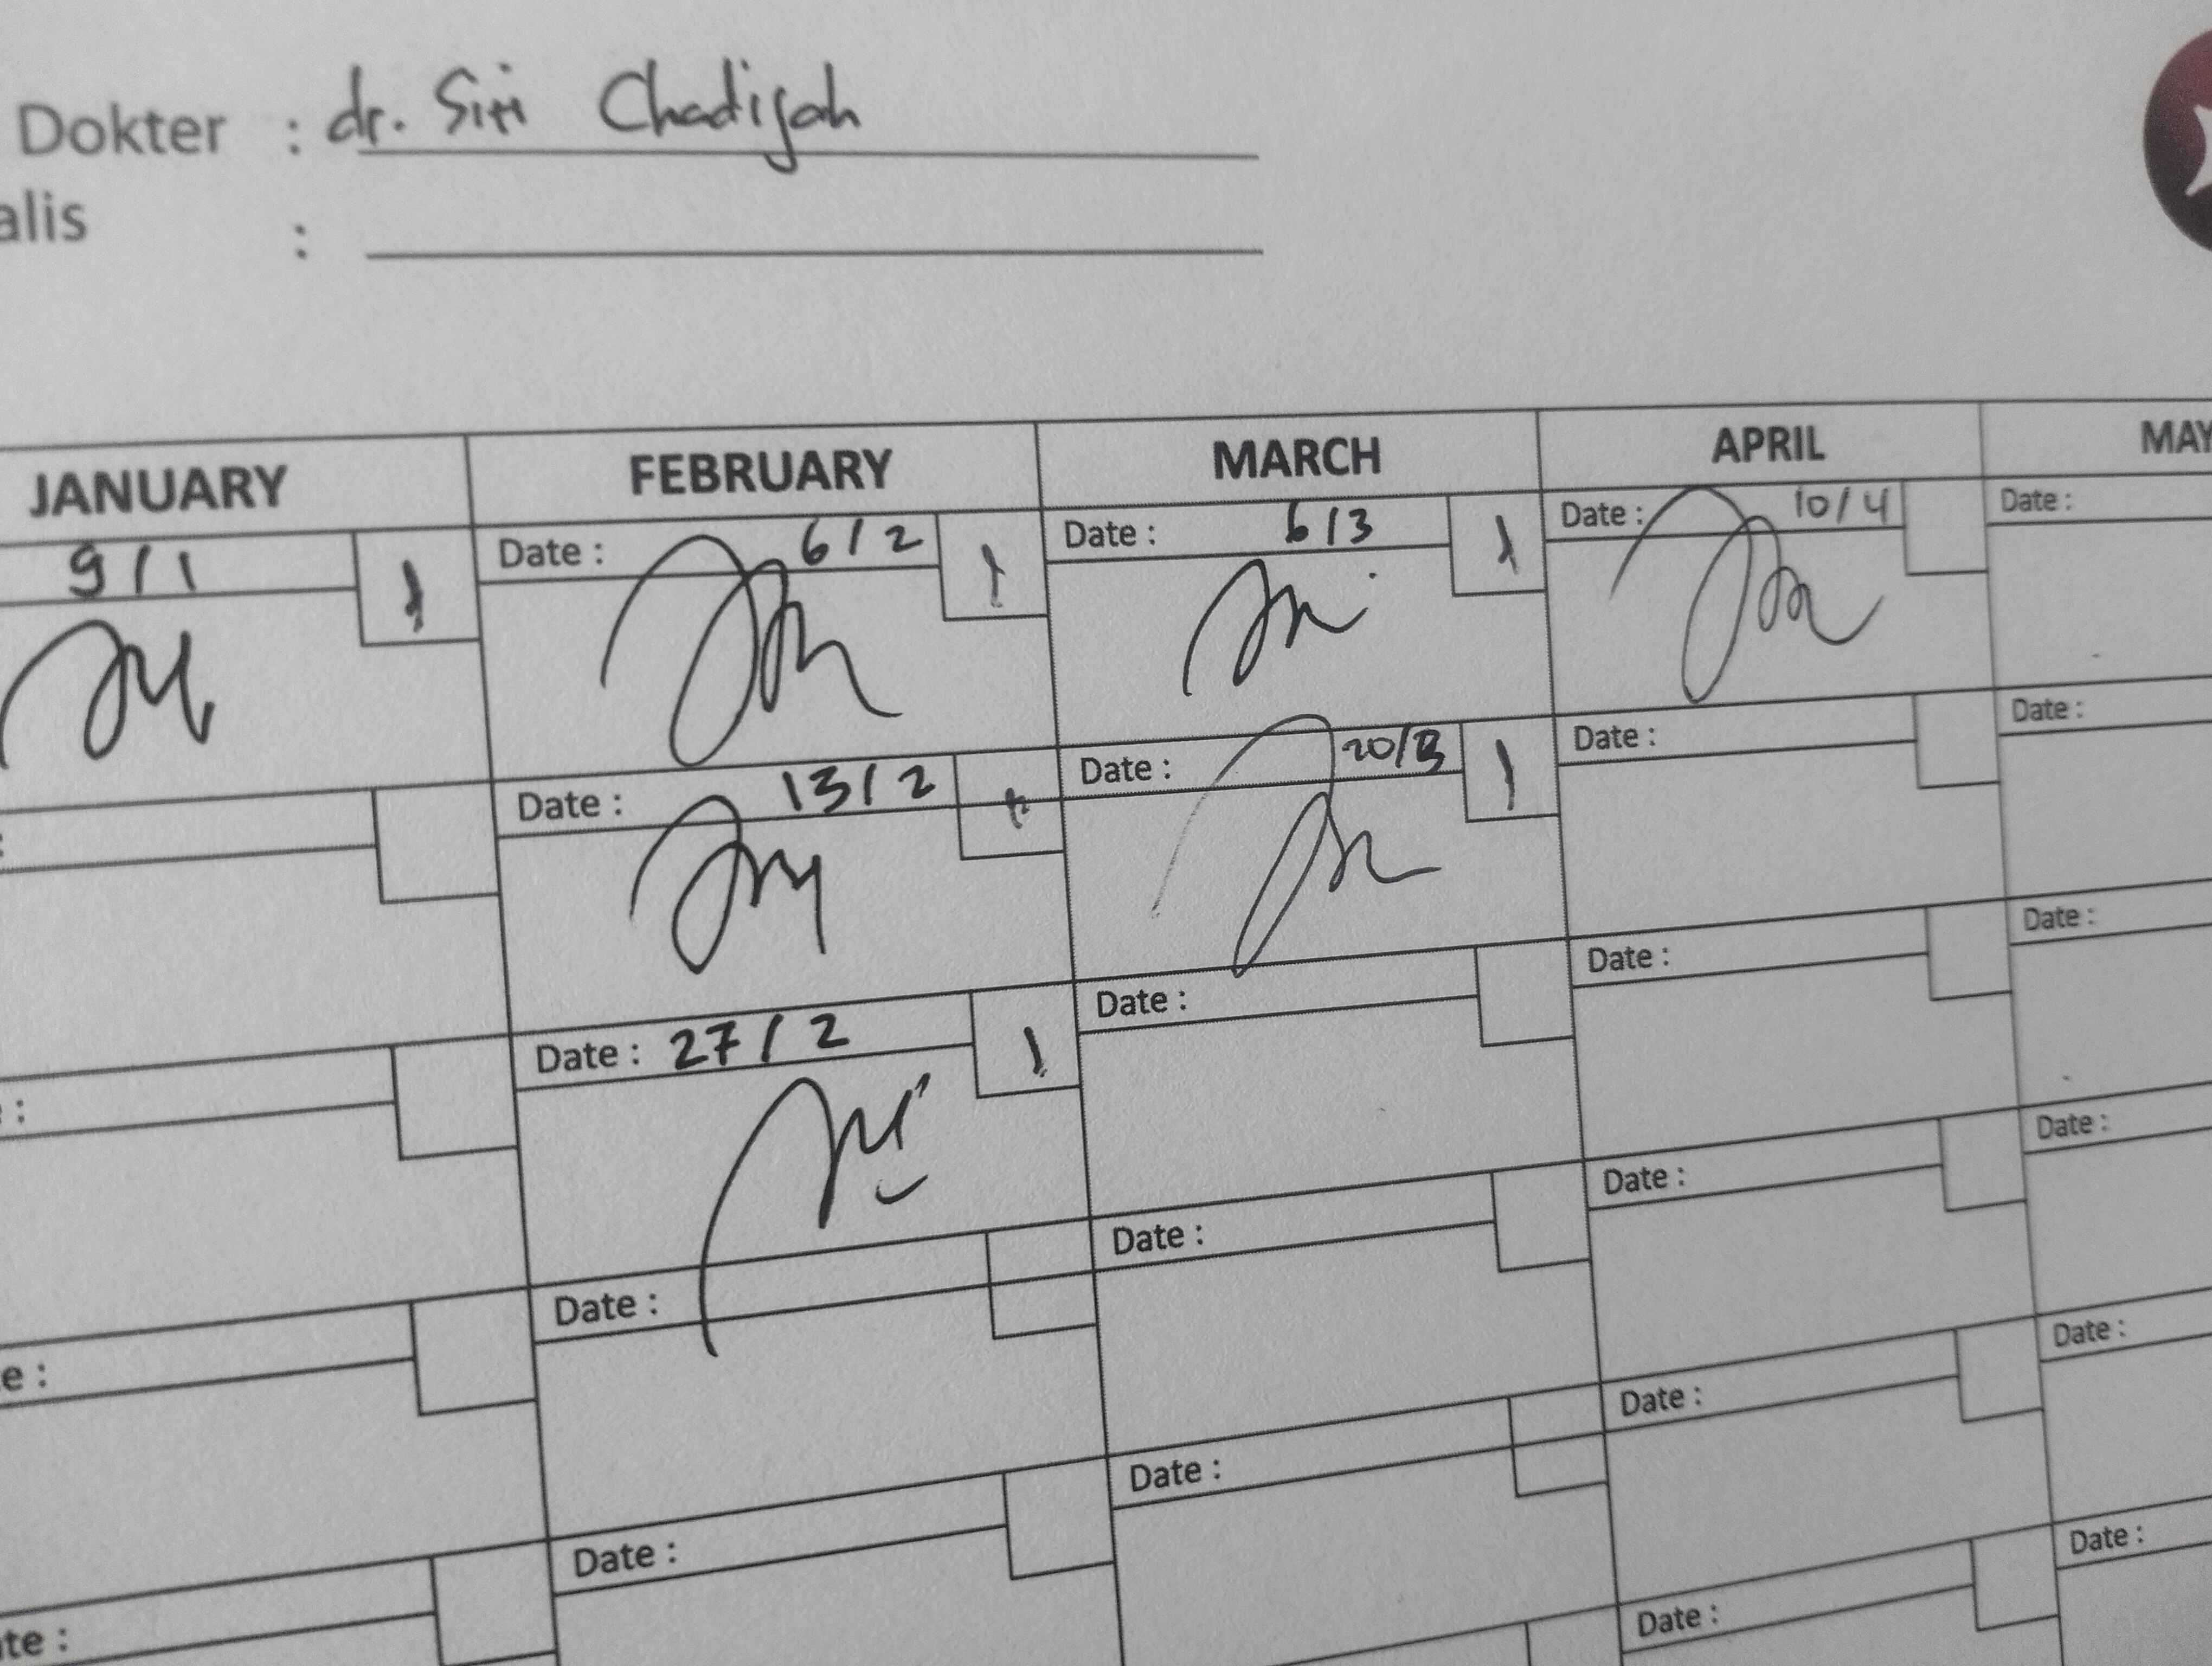 Dokter : dr. Siti Chadijah
alis :
JANUARY FEBRUARY MARCH APRIL MAY
9/1 1 Date : 6/2 1 Date : 6/3 1 Date : 10/4 Date :
Date : 13/2 Date : 20/3 1 Date : Date :
Date : 27/2 1 Date : Date : Date :
e : Date : Date : Date : Date :
te : Date : Date : Date : Date :
Date : Date :